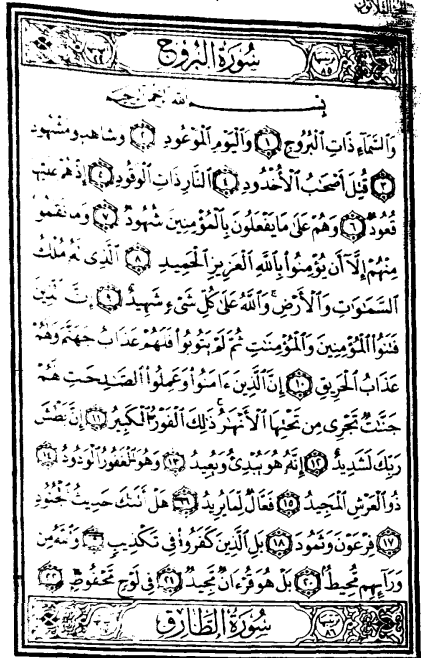 سُورَةُ البُرُوجِ
بِسْمِ اللَّهِ الرَّحْمَٰنِ الرَّحِيمِ
وَالسَّمَاءِ ذَاتِ الْبُرُوجِ ١ وَالْيَوْمِ الْمَوْعُودِ ٢ وَشَاهِدٍ وَمَشْهُودٍ
٣ قُتِلَ أَصْحَٰبُ الْأُخْدُودِ ٤ النَّارِ ذَاتِ الْوَقُودِ ٥ إِذْ هُمْ عَلَيْهَا
قُعُودٌ ٦ وَهُمْ عَلَىٰ مَا يَفْعَلُونَ بِالْمُؤْمِنِينَ شُهُودٌ ٧ وَمَا نَقَمُوا
مِنْهُمْ إِلَّا أَن يُؤْمِنُوا بِاللَّهِ الْعَزِيزِ الْحَمِيدِ ٨ الَّذِي لَهُ مُلْكُ
السَّمَٰوَٰتِ وَالْأَرْضِ ۚ وَاللَّهُ عَلَىٰ كُلِّ شَيْءٍ شَهِيدٌ ٩ إِنَّ الَّذِينَ
فَتَنُوا الْمُؤْمِنِينَ وَالْمُؤْمِنَٰتِ ثُمَّ لَمْ يَتُوبُوا فَلَهُمْ عَذَابُ جَهَنَّمَ وَلَهُمْ
عَذَابُ الْحَرِيقِ ١٠ إِنَّ الَّذِينَ ءَامَنُوا وَعَمِلُوا الصَّٰلِحَٰتِ لَهُمْ
جَنَّٰتٌ تَجْرِي مِن تَحْتِهَا الْأَنْهَٰرُ ۚ ذَٰلِكَ الْفَوْزُ الْكَبِيرُ ١١ إِنَّ بَطْشَ
رَبِّكَ لَشَدِيدٌ ١٢ إِنَّهُ هُوَ يُبْدِئُ وَيُعِيدُ ١٣ وَهُوَ الْغَفُورُ الْوَدُودُ ١٤
ذُو الْعَرْشِ الْمَجِيدُ ١٥ فَعَّالٌ لِّمَا يُرِيدُ ١٦ هَلْ أَتَىٰكَ حَدِيثُ الْجُنُودِ
١٧ فِرْعَوْنَ وَثَمُودَ ١٨ بَلِ الَّذِينَ كَفَرُوا فِي تَكْذِيبٍ ١٩ وَاللَّهُ مِن
وَرَائِهِم مُّحِيطٌ ٢٠ بَلْ هُوَ قُرْءَانٌ مَّجِيدٌ ٢١ فِي لَوْحٍ مَّحْفُوظٍ ٢٢
سُورَةُ الطَّارِقِ